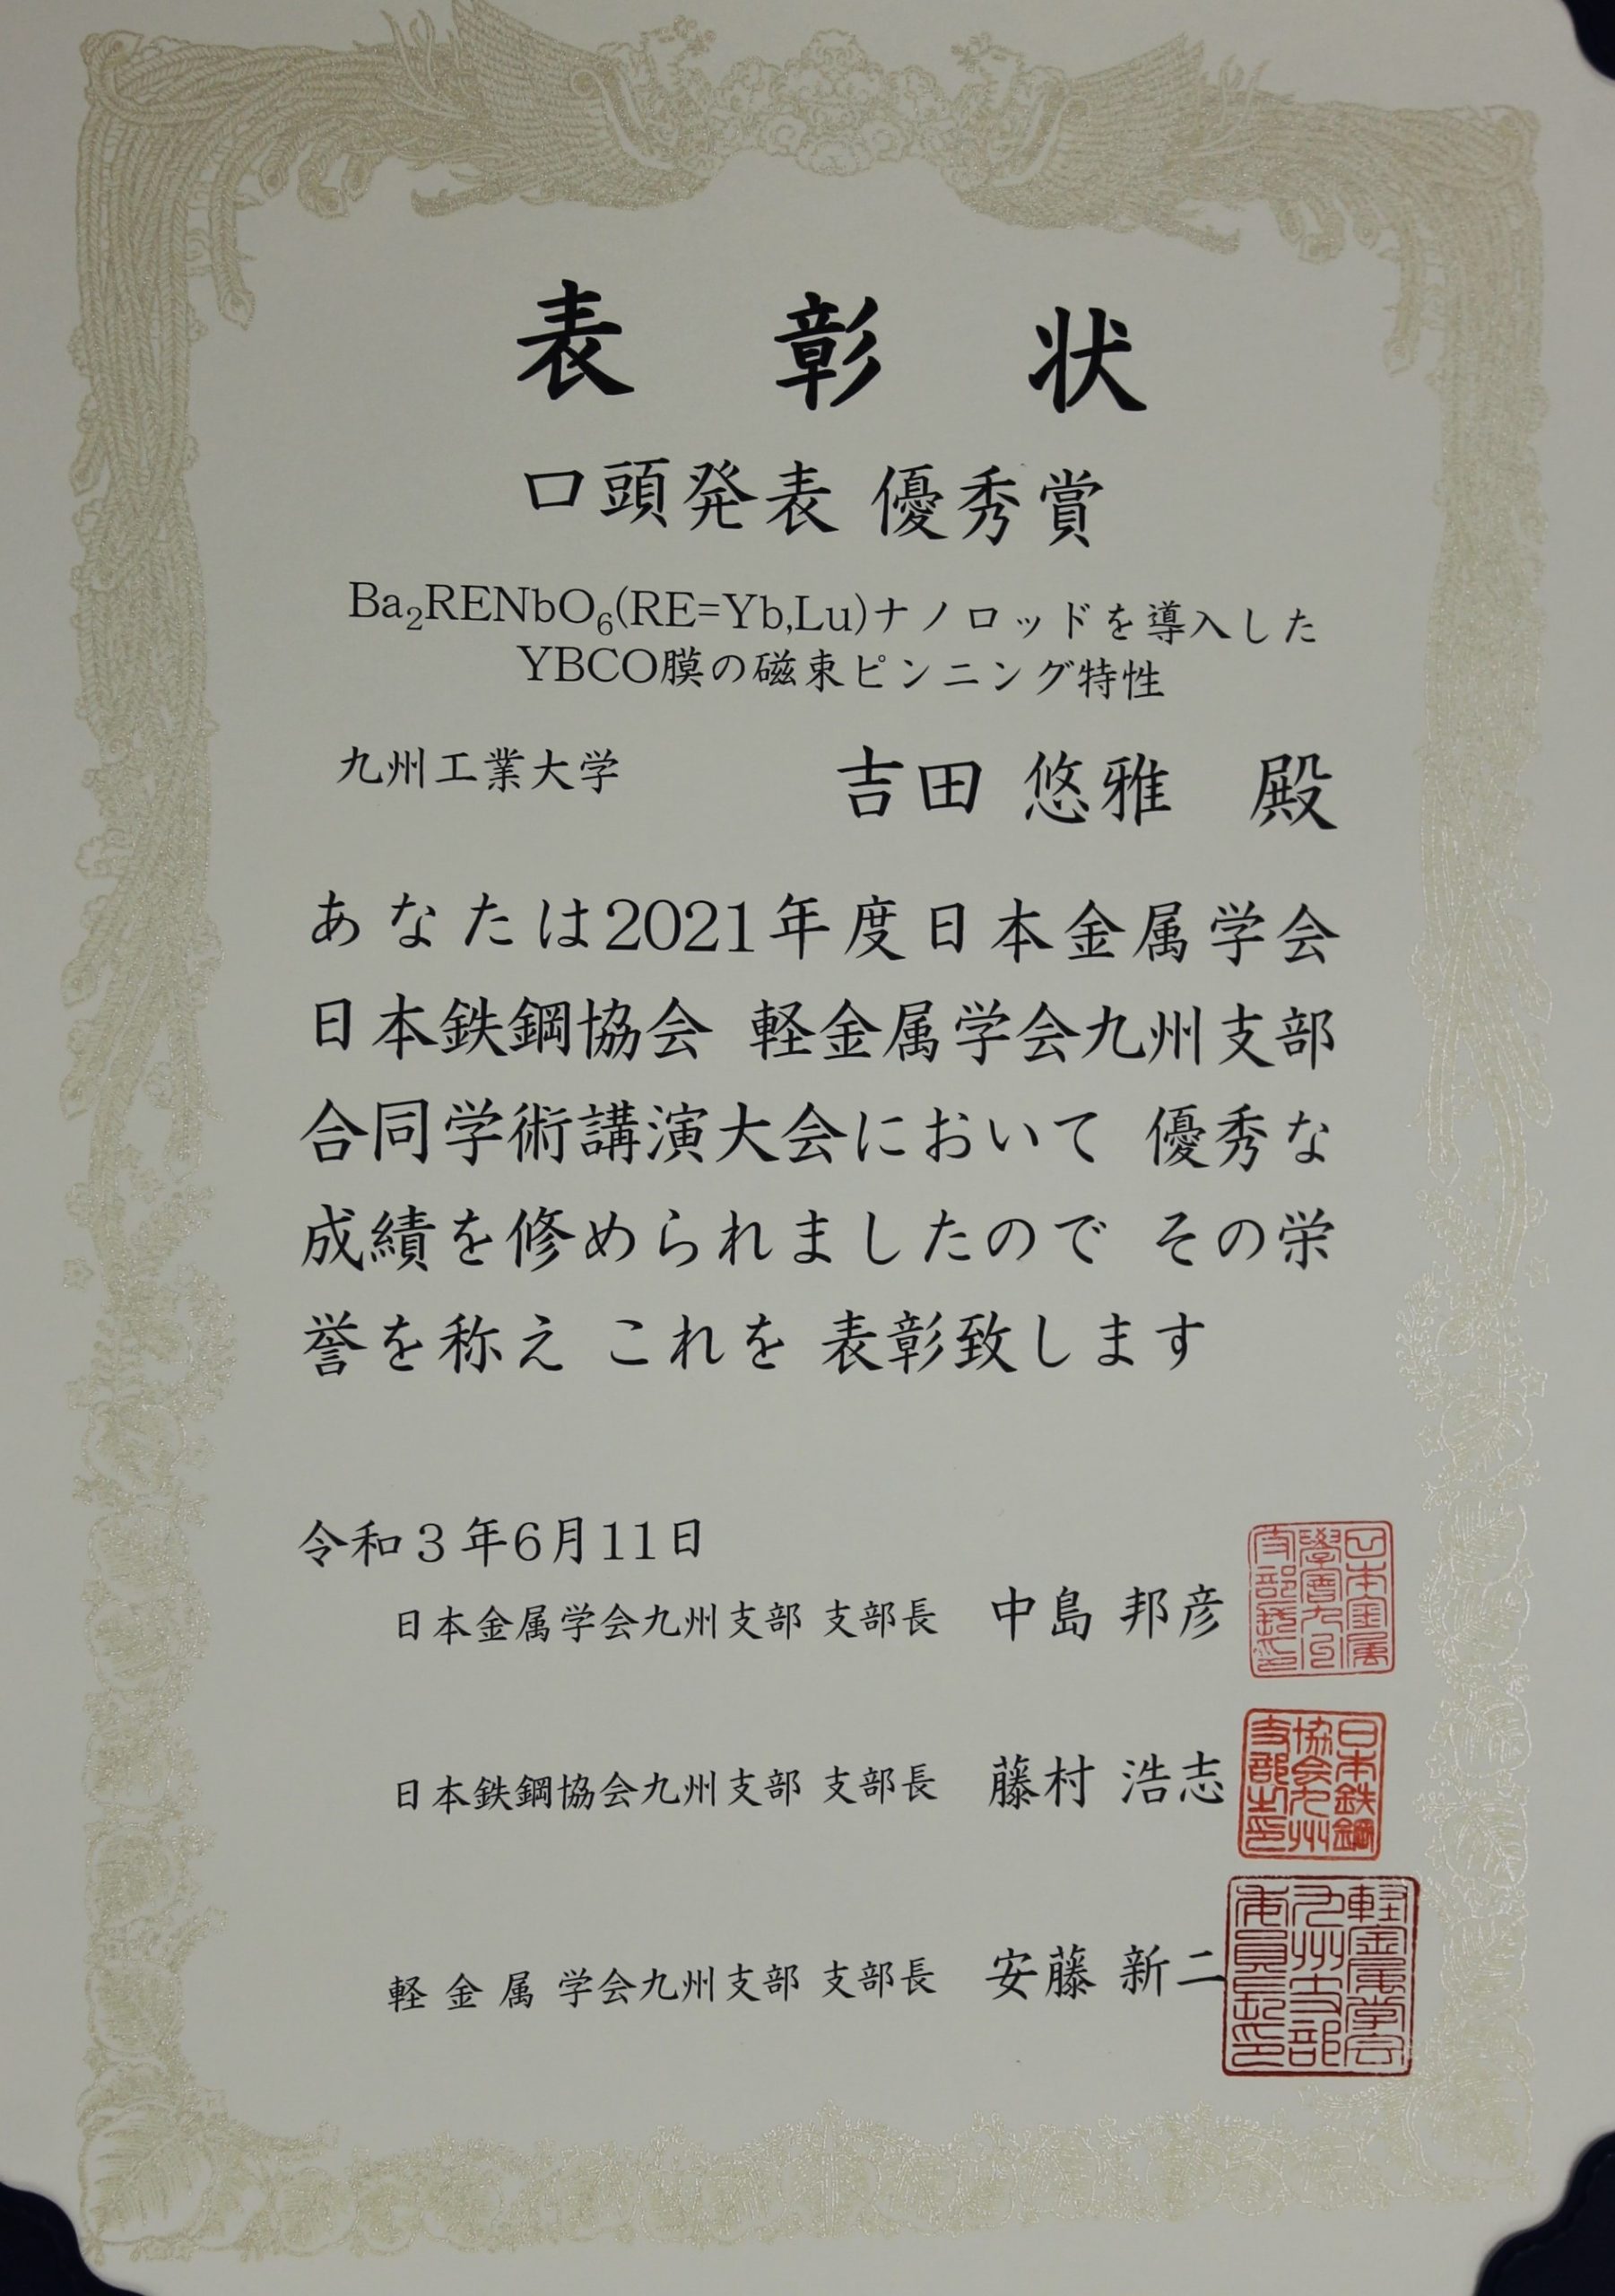 表 彰 状
口頭発表 優秀賞
Ba₂RENbO₆(RE=Yb,Lu)ナノロッドを導入した
YBCO膜の磁束ピンニング特性
九州工業大学 吉田 悠雅 殿
あなたは2021年度日本金属学会
日本鉄鋼協会 軽金属学会九州支部
合同学術講演大会において 優秀な
成績を修められましたので その栄
誉を称え これを 表彰致します
令和3年6月11日
日本金属学会九州支部 支部長 中島 邦彦
日本鉄鋼協会九州支部 支部長 藤村 浩志
軽金属学会九州支部 支部長 安藤 新二